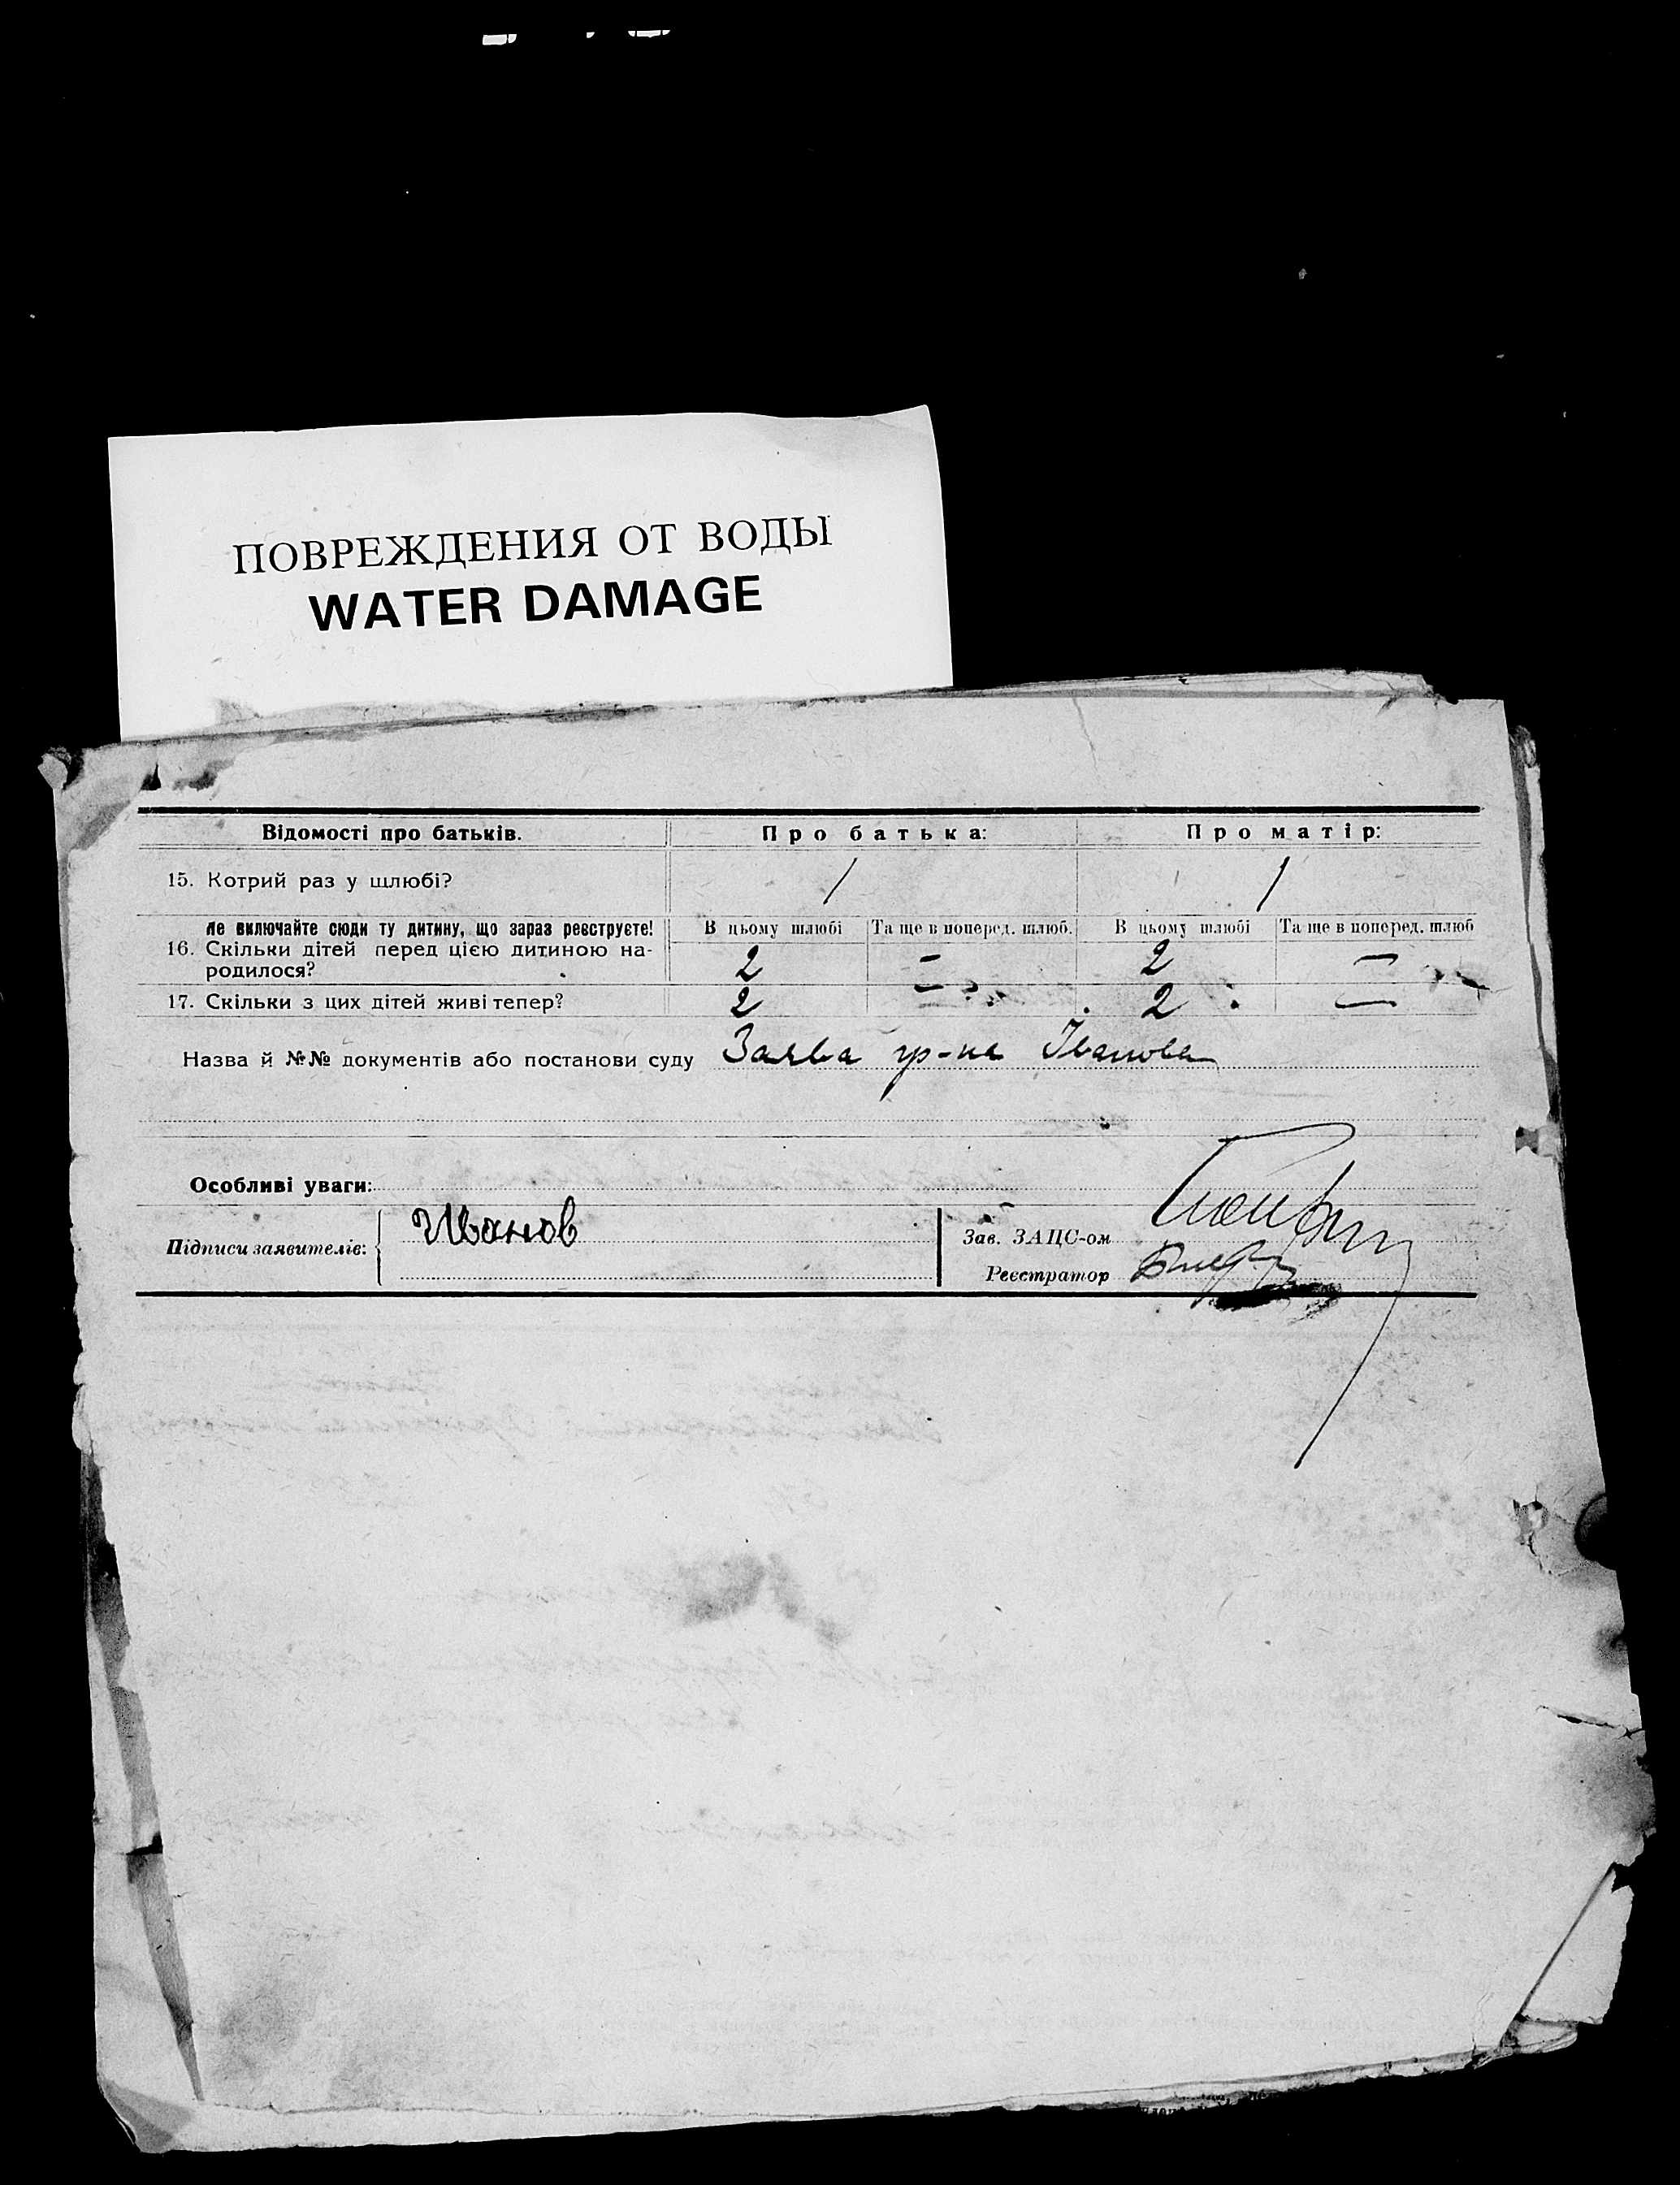 ПОВРЕЖДЕНИЯ ОТ ВОДЫ
WATER DAMAGE
Відомості про батьків. Про батька: Про матір:
15. Котрий раз у шлюбі? 1 1
Не включайте сюди ту дитину, що зараз реєструєте! В цьому шлюбі Та ще в поперед. шлюб. В цьому шлюбі Та ще в поперед. шлюб
16. Скільки дітей перед цією дитиною на- 2 – 2 –
родилося?
17. Скільки з цих дітей живі тепер? 2 – 2 –
Назва й №№ документів або постанови суду Заява гр-на Іванова
Особливі уваги:
Підписи заявителів: Иванов
Зав. ЗАЦС-ом
Реєстратор